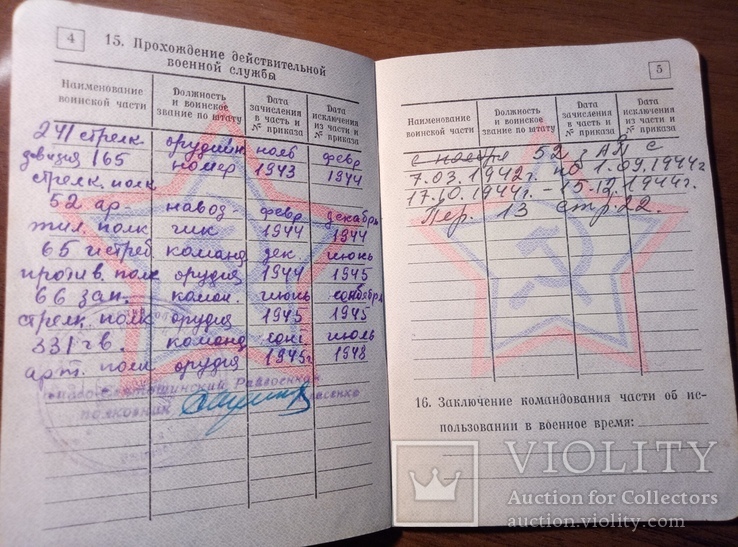 4
15. Прохождение действительной
военной службы
Наименование воинской части
Должность и воинское звание по штату
Дата зачисления в часть и № приказа
Дата исключения из части и № приказа
241 стрелк. орудийн нояб февр
дивизия 165 номер 1943 1944
стрелк. полк
52 ар. навод- февр декабрь
тил. полк чик 1944 1944
65 истреб команд дек. июнь
против полк орудия 1944 1945
66 зап. коман. июнь сентябрь
стрелк полк орудия 1945 1945
331 гв. команд сент июль
арт. полк орудия 1945г 1948
полковник
5
Наименование воинской части
Должность и воинское звание по штату
Дата зачисления в часть и № приказа
Дата исключения из части и № приказа
с ноября 52 з АП с
7.03.1942г по 1.09.1944г
17.10.1944г - 15.12.1944г.
Пер. 13 стр. 22.
16. Заключение командования части об ис-
пользовании в военное время:
VIOLITY
Auction for Collectors
auction.violity.com